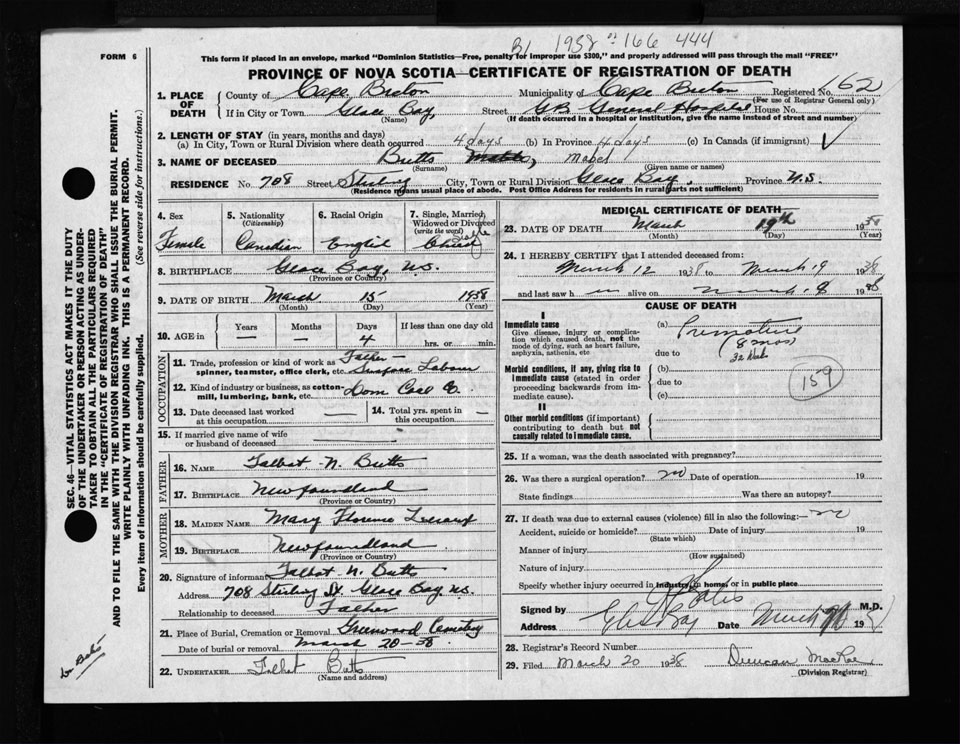 FORM 6
1938 166 444
This form if placed in an envelope, marked "Dominion Statistics—Free, penalty for improper use $300," and properly addressed will pass through the mail "FREE"
PROVINCE OF NOVA SCOTIA—CERTIFICATE OF REGISTRATION OF DEATH
SEC. 46—VITAL STATISTICS ACT MAKES IT THE DUTY
OF THE UNDERTAKER OR PERSON ACTING AS UNDER-
TAKER TO OBTAIN ALL THE PARTICULARS REQUIRED
IN THE "CERTIFICATE OF REGISTRATION OF DEATH"
AND TO FILE THE SAME WITH THE DIVISION REGISTRAR WHO SHALL ISSUE THE BURIAL PERMIT.
WRITE PLAINLY WITH UNFADING INK. THIS IS A PERMANENT RECORD.
Every item of Information should be carefully supplied. (See reverse side for instructions.)
1. PLACE OF DEATH County of Cape Breton Municipality of Cape Breton Registered No. 162
(For use of Registrar General only)
If in City or Town Glace Bay, Street G.B General Hospital House No.
(Name) (If death occurred in a hospital or institution, give the name instead of street and number)
2. LENGTH OF STAY (in years, months and days)
(a) In City, Town or Rural Division where death occurred 4 days (b) In Province 4 days (c) In Canada (if immigrant)
3. NAME OF DECEASED Butts Mabel
(Surname) (Given name or names)
RESIDENCE No. 708 Street Sterling City, Town or Rural Division Glace Bay, Province N.S.
(Residence means usual place of abode. Post Office Address for residents in rural parts not sufficient)
4. Sex 5. Nationality (Citizenship) 6. Racial Origin 7. Single, Married, Widowed or Divorced (write the word)
Female Canadian English Child Single
8. BIRTHPLACE Glace Bay, N.S.
(Province or Country)
9. DATE OF BIRTH March 15 1938
(Month) (Day) (Year)
10. AGE in Years Months Days If less than one day old
— — 4 hrs. or min.
OCCUPATION
11. Trade, profession or kind of work as spinner, teamster, office clerk, etc. Father — Labour
12. Kind of industry or business, as cotton-mill, lumbering, bank, etc. Dom Coal Co.
13. Date deceased last worked at this occupation —
14. Total yrs. spent in this occupation —
15. If married give name of wife or husband of deceased —
FATHER
16. NAME Talbot N. Butts
17. BIRTHPLACE Newfoundland
(Province or Country)
MOTHER
18. MAIDEN NAME Mary Florence
19. BIRTHPLACE Newfoundland
(Province or Country)
20. Signature of informant Talbot N. Butts
Address 708 Sterling St. Glace Bay N.S.
Relationship to deceased Father
21. Place of Burial, Cremation or Removal Greenwood Cemetery
Date of burial or removal March 20 - 38
22. UNDERTAKER Talbot Butts
(Name and address)
MEDICAL CERTIFICATE OF DEATH
23. DATE OF DEATH March 19th 1938
(Month) (Day) (Year)
24. I HEREBY CERTIFY that I attended deceased from:
March 12 1938 to March 9 1938
and last saw h alive on March 8 1938
CAUSE OF DEATH
I
Immediate cause
Give disease, injury or complication which caused death, not the mode of dying, such as heart failure, asphyxia, asthenia, etc
(a) Premature
(8 mos)
32 wks
due to
159
Morbid conditions, if any, giving rise to immediate cause (stated in order proceeding backwards from immediate cause).
(b)
due to
(c)
II
Other morbid conditions (if important) contributing to death but not causally related to immediate cause.
25. If a woman, was the death associated with pregnancy?
26. Was there a surgical operation? no Date of operation 19
State findings Was there an autopsy?
27. If death was due to external causes (violence) fill in also the following:— no
Accident, suicide or homicide? Date 19
(State which)
Manner of injury
(How sustained)
Nature of injury
Specify whether injury occurred in industry, in home, or in public place
Signed by M.D.
Address Glace Bay Date March 193
28. Registrar's Record Number
29. Filed March 20 1938 Duncan MacRae
(Division Registrar)